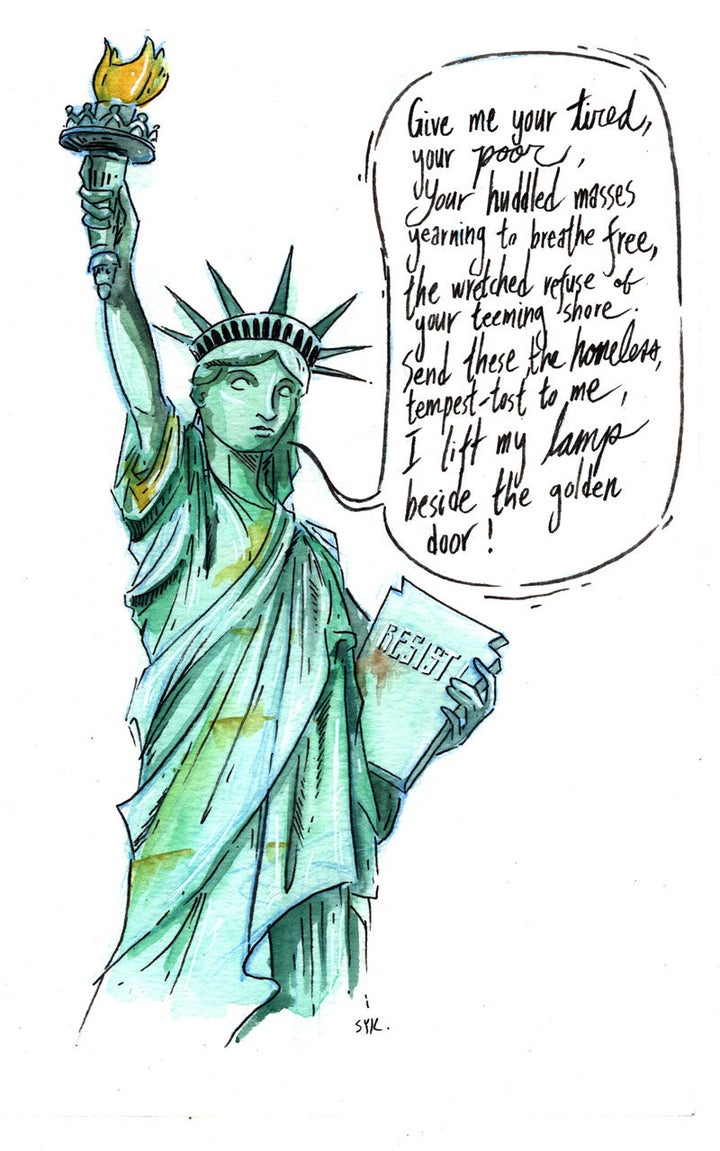 Give me your tired,
your poor,
your huddled masses
yearning to breathe free,
the wretched refuse of
your teeming shore.
Send these, the homeless,
tempest-tost to me,
I lift my lamp
beside the golden
door!
RESIST
SYK.